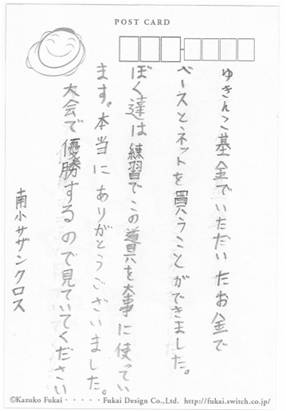 POST CARD
ゆきんこ基金でいただいたお金で
ベースとネットを買うことができました。
ぼく達は練習でこの道具を大事に使ってい
ます。本当にありがとうございました。
大会で優勝するので見ていてください
南小サザンクロス
©Kazuko Fukai・・・・・Fukai Design Co.,Ltd. http://fukai.switch.co.jp/